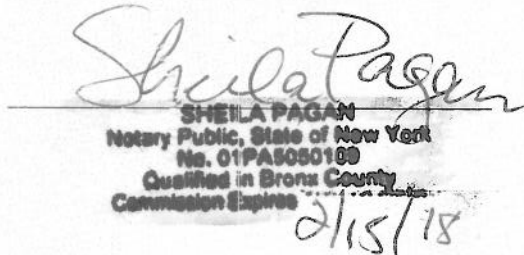 Sheila Pagan
SHEILA PAGAN
Notary Public, State of New York
No. 01PA5050109
Qualified in Bronx County
Commission Expires 2/15/18